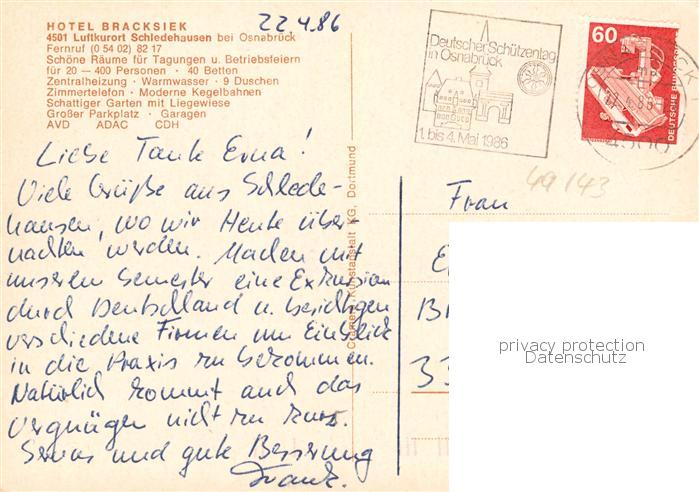 HOTEL BRACKSIEK
4501 Luftkurort Schledehausen bei Osnabrück
Fernruf (0 54 02) 82 17
Schöne Räume für Tagungen u. Betriebsfeiern
für 20 — 400 Personen · 40 Betten
Zentralheizung · Warmwasser · 9 Duschen
Zimmertelefon · Moderne Kegelbahnen
Schattiger Garten mit Liegewiese
Großer Parkplatz · Garagen
AVD ADAC CDH
22.4.86
Liebe Tante Erna!
Viele Grüße aus Schlede-
hausen, wo wir Heute über-
nachten werden. Machen mit
unserem Semester eine Exkursion
durch Deutschland u. besichtigen
verschiedene Firmen um Einblick
in die Praxis zu bekommen.
Natürlich kommt auch das
Vergnügen nicht zu kurz.
Servus und gute Besserung
Frank.
Cramers Kunstanstalt KG, Dortmund
Deutscher Schützentag
in Osnabrück
1. bis 4. Mai 1986
60
DEUTSCHE BUNDESPOST
49143
Frau
E
B
33
privacy protection
Datenschutz